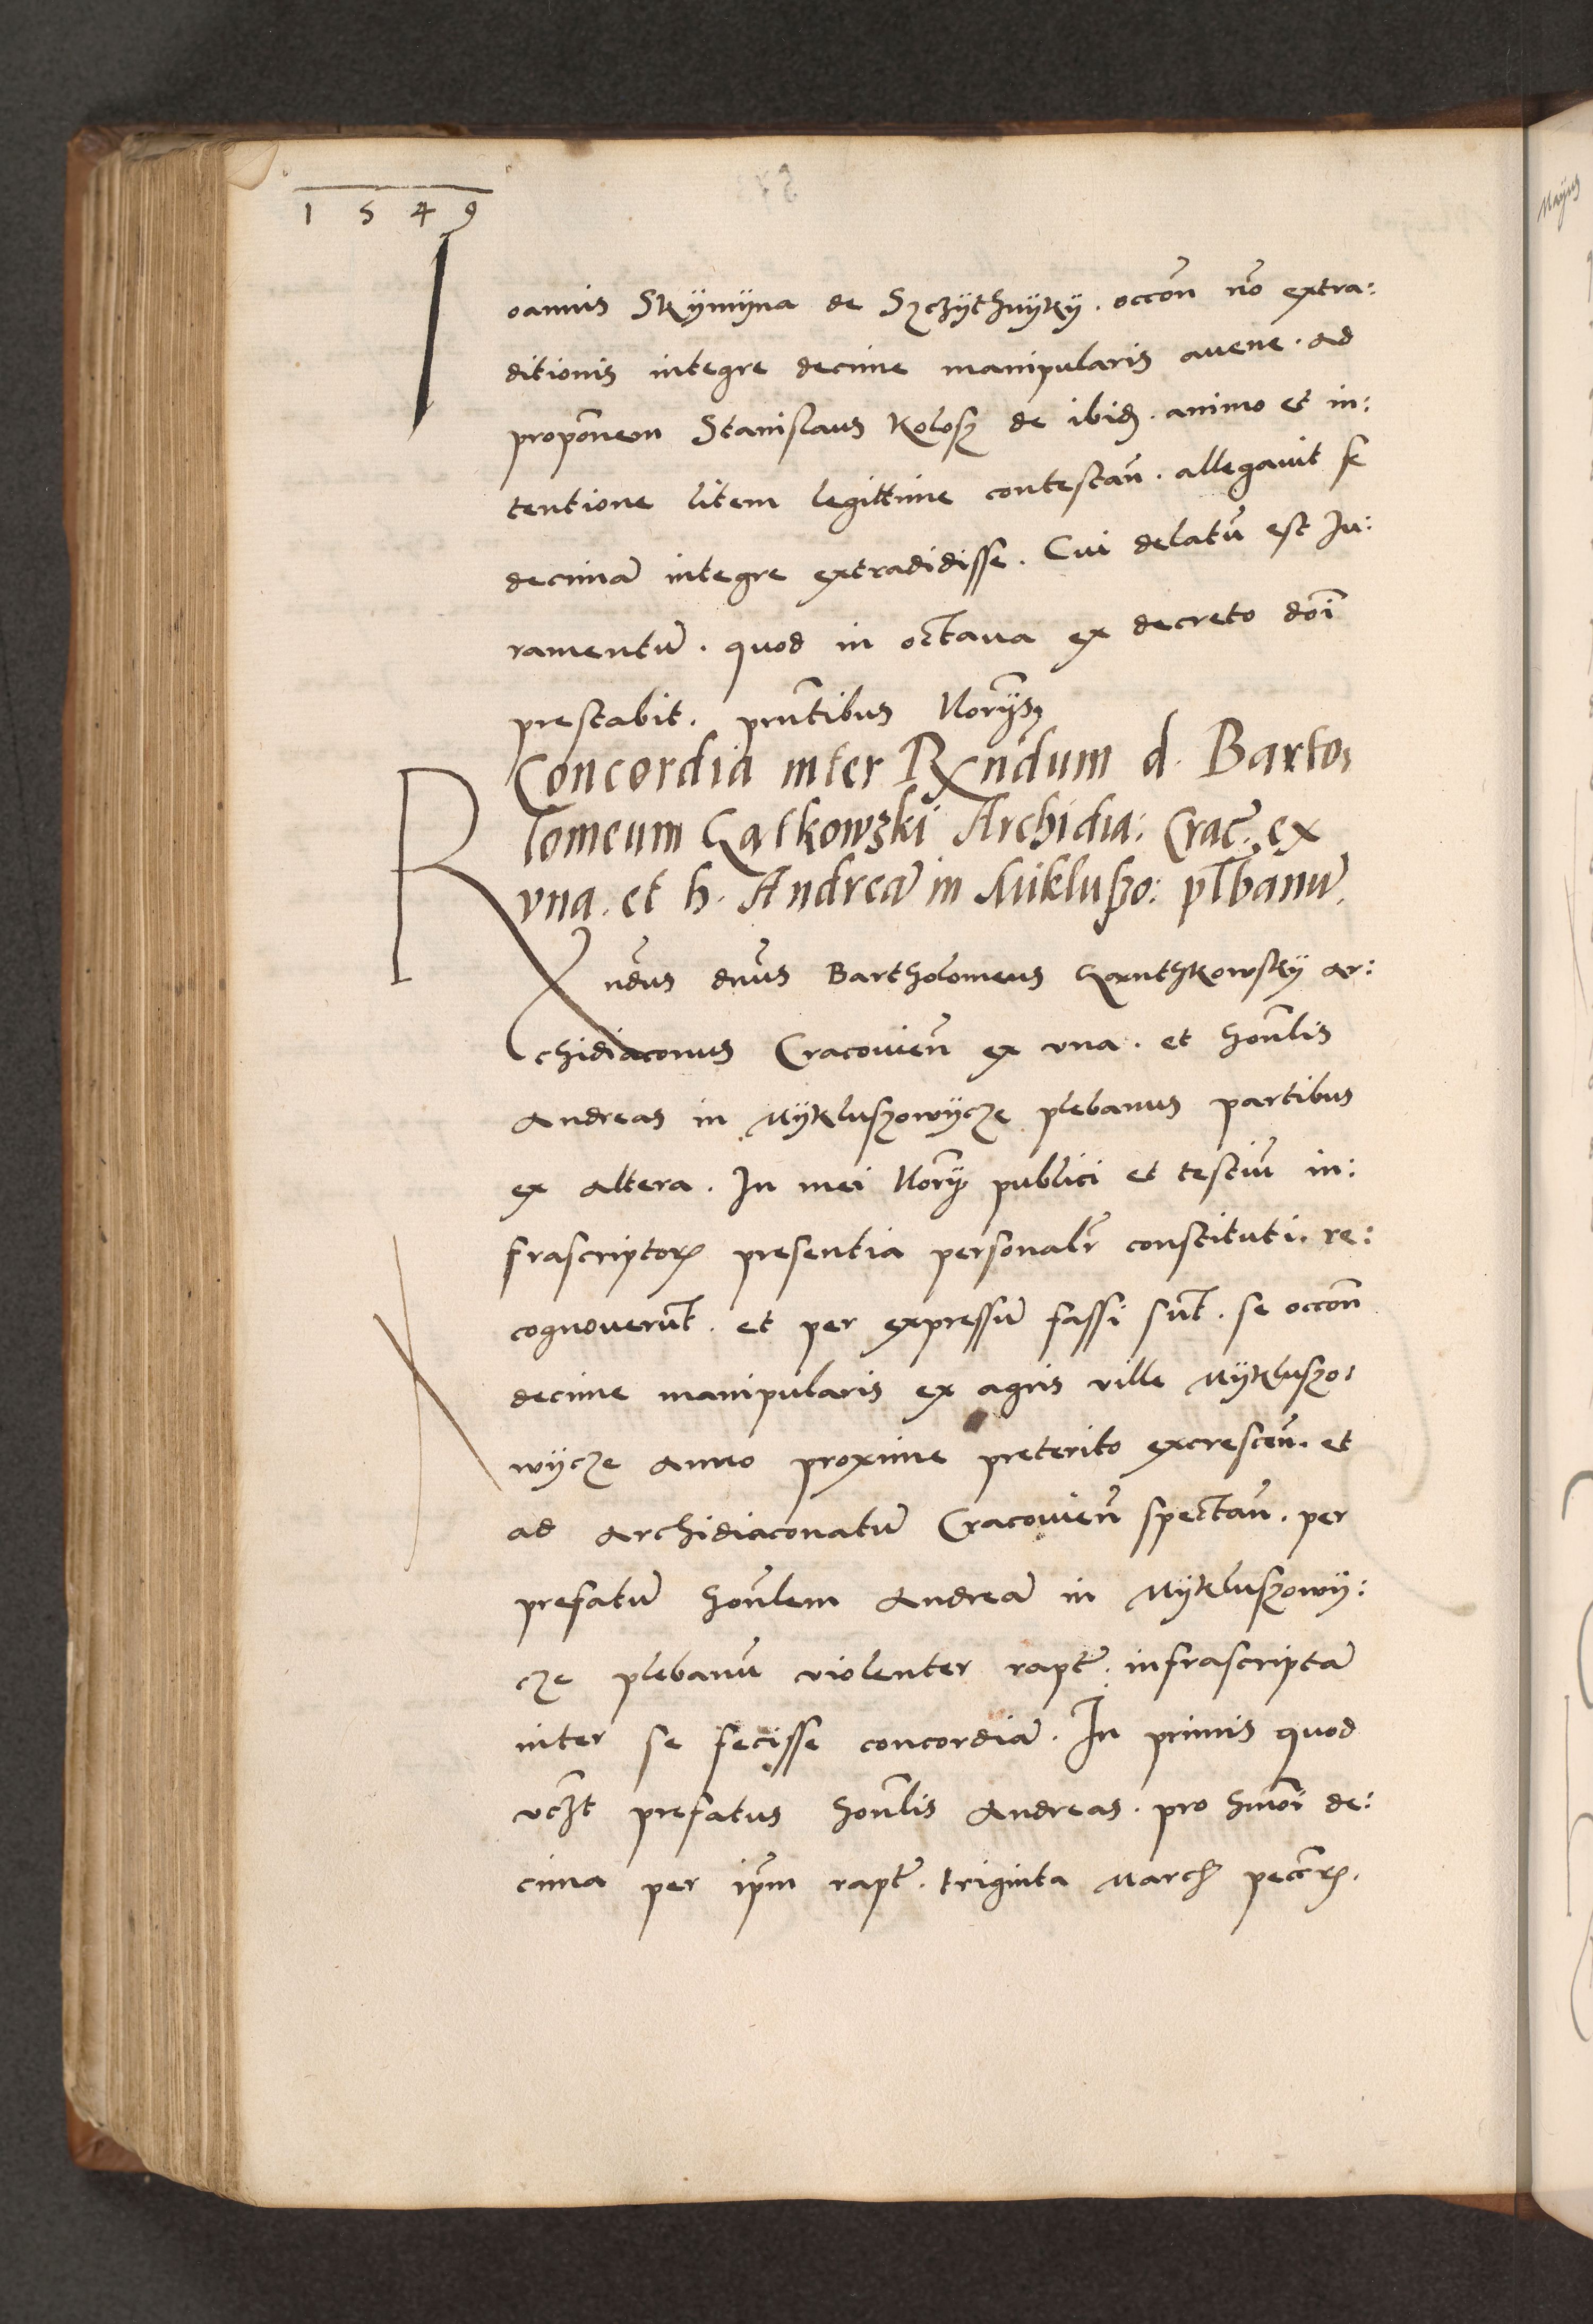 1549
Ioannis Skymyna de Sczythnyky. occõn nõ extra:
ditionis integre decime manipularis avene. ad
propõnem Stanislaus Kolosz de ibid. animo et in:
tentione litem legittime contestañ. allegauit se
decimã integre extradidisse. Cui delatũ est Iu:
ramentũ. quod in octaua ex decreto dõi
prestabit. pñtibus Norijs
Concordia inter Rxndum d. Barto,
lomeum Gątkowski Archidia: Crac̃. ex
vna. et h. Andreã in Miklußo: plbanũ.
Rxndus dñus Bartholomeus Ganthkowsky Ar:
chidiaconus Cracovieñ ex vna. et hoñlis
Andreas in Mykluszowycze plebanus partibus
ex altera. In mei Norij publici et testiũ in:
frascriptorꝝ presentia personalr̃ constituti. re:
cognouerũt. et per expressũ fassi sũt. se occõn
decime manipularis ex agris ville Mykluszo:
wycze Anno proxime preterito excresceñ. et
ad Archidiaconatũ Cracovieñ spectañ. per
prefatũ hoñlem Andreã in Mykluszowy:
cze plebanũ violenter rapt̃. infrascriptã
inter se fecisse concordiã. In primis quod
vczt prefatus hoñlis Andreas. pro hmõi de:
cima per ip̃m rapt̃. triginta March pecc̃rꝝ.